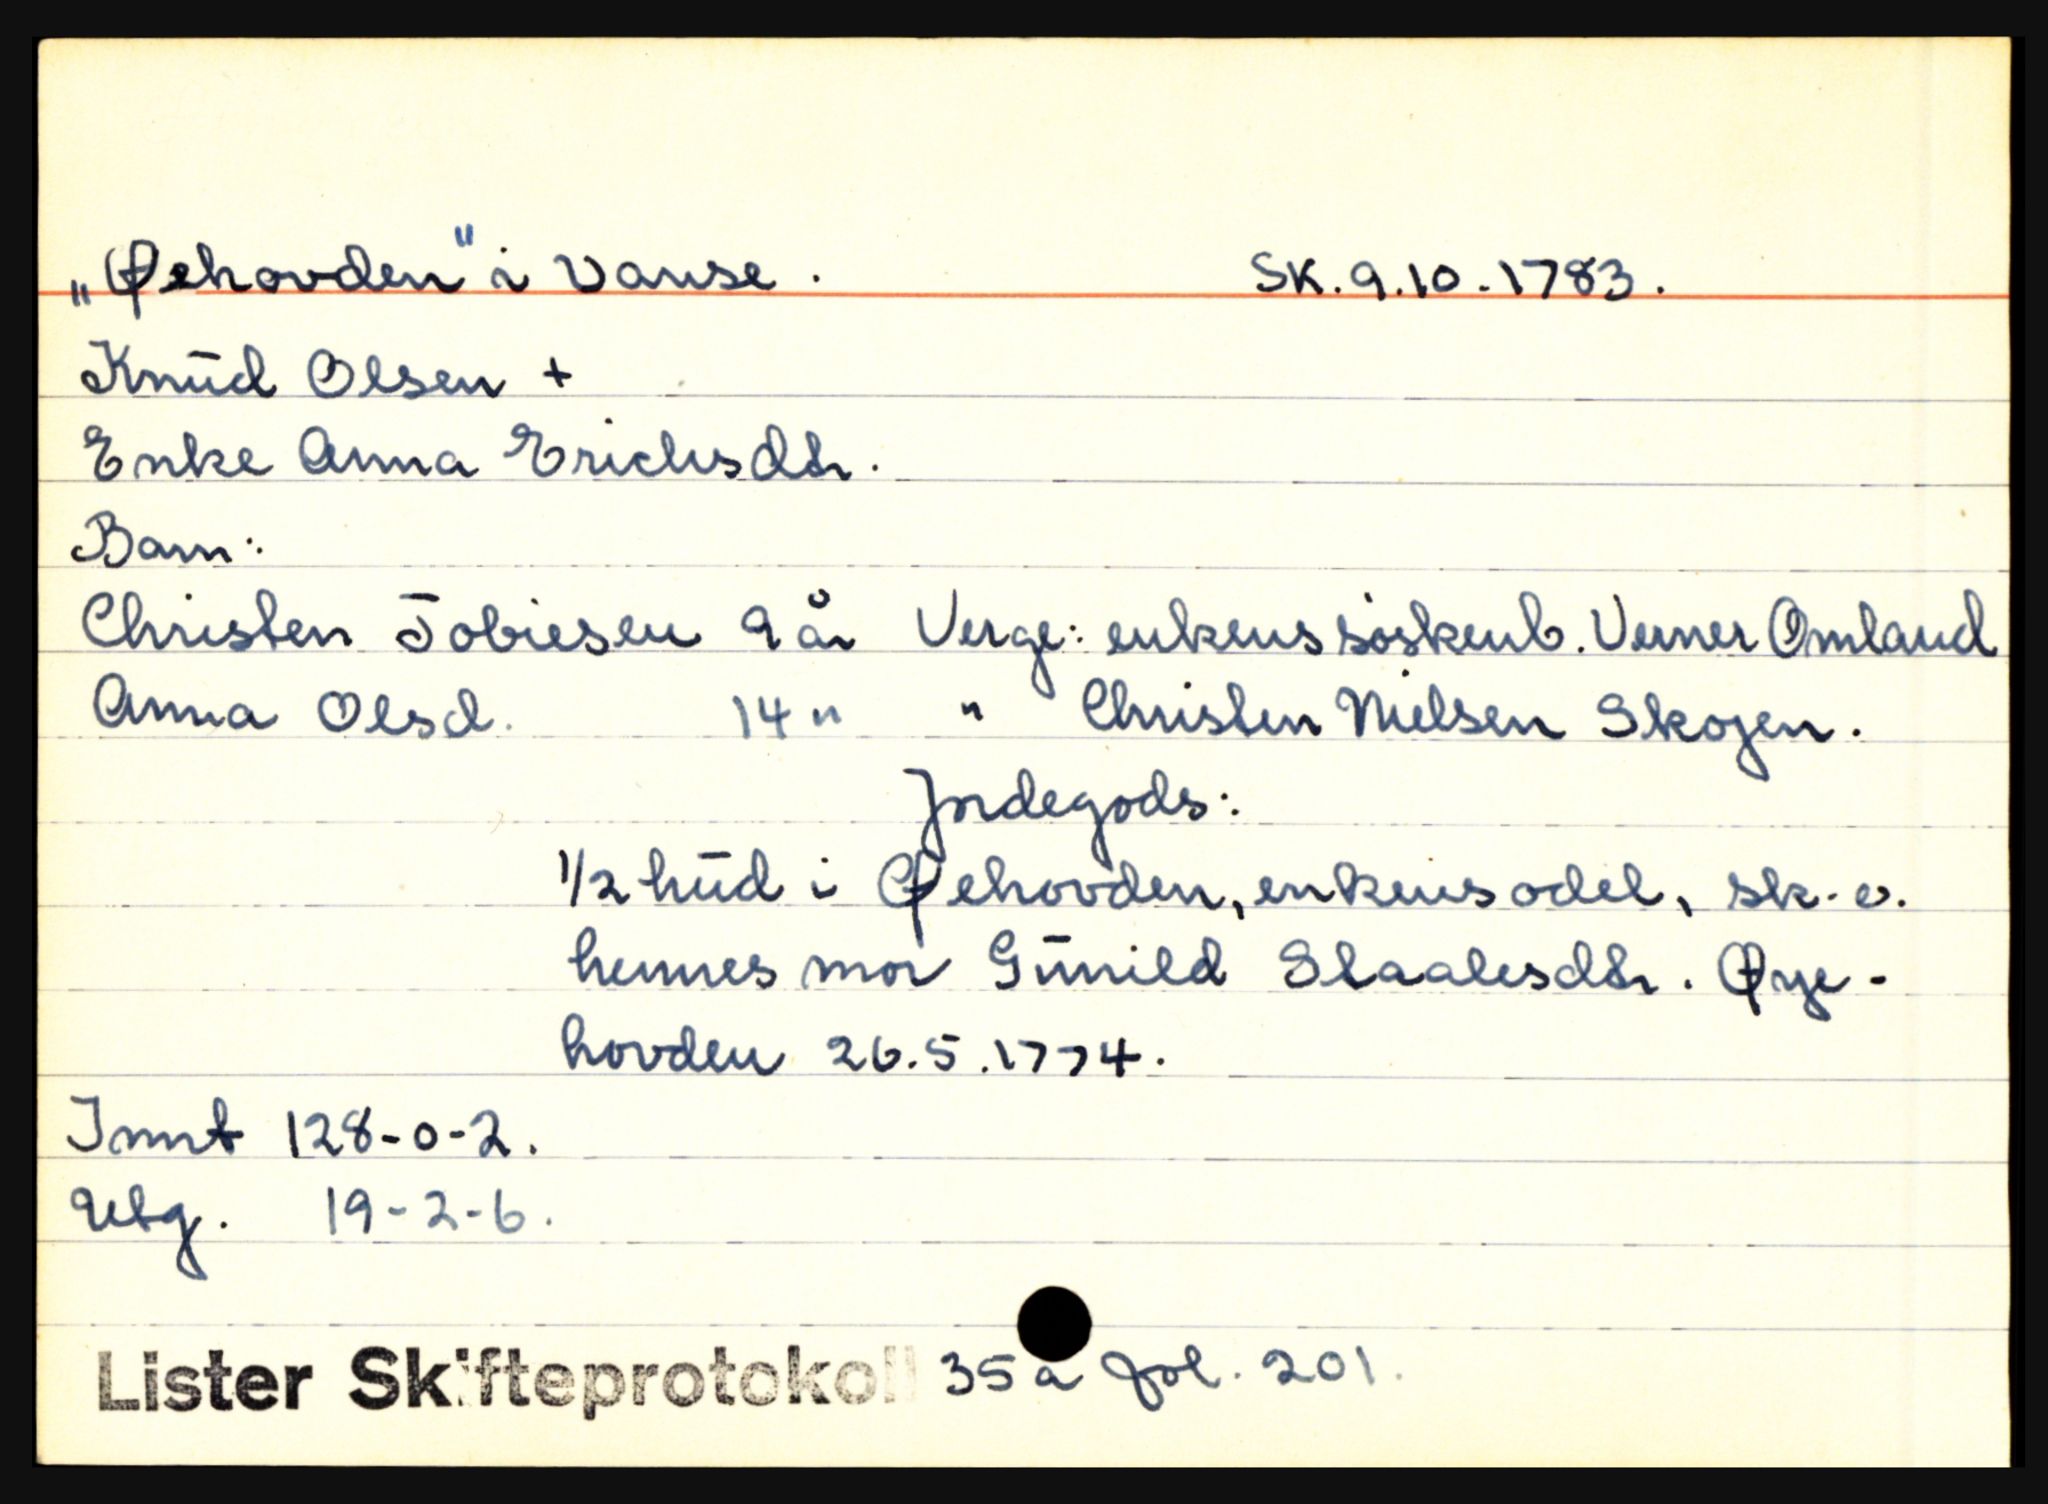 „Øehovden" i Vanse. SK. 9.10.1783.
Knūd Olsen +
Enke Anna Erichsdtr.
Barn:
Christen Tobiesen 9 år Verge: enkens søskenb. Verner Omland
Anna Olsd. 14 " " Christen Nielsen Skogen.
Jordegods:
1/2 hūd i Øehovden, enkens odel, sk. e.
hennes mor Gūnild Staalesdtr. Øye-
hovden 26.5.1774.
Innt 128-0-2.
Utg. 19-2-6.
Lister Skifteprotokoll 35a fol. 201.